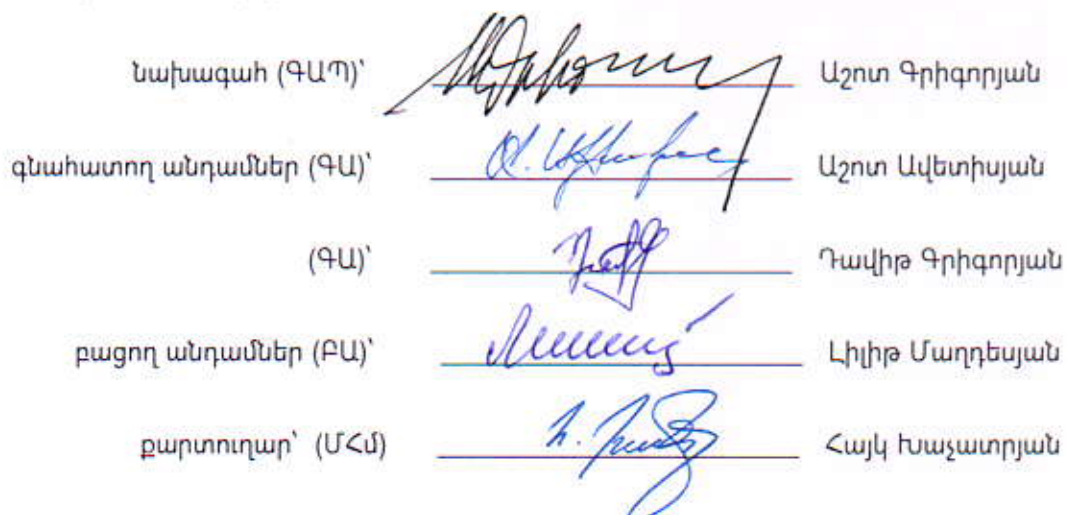 նախագահ (ԳԱՊ)՝ Աշոտ Գրիգորյան
գնահատող անդամներ (ԳԱ)՝ Աշոտ Ավետիսյան
(ԳԱ)՝ Դավիթ Գրիգորյան
բացող անդամներ (ԲԱ)՝ Լիլիթ Մաղդեսյան
քարտուղար՝ (ՄՀմ) Հայկ Խաչատրյան